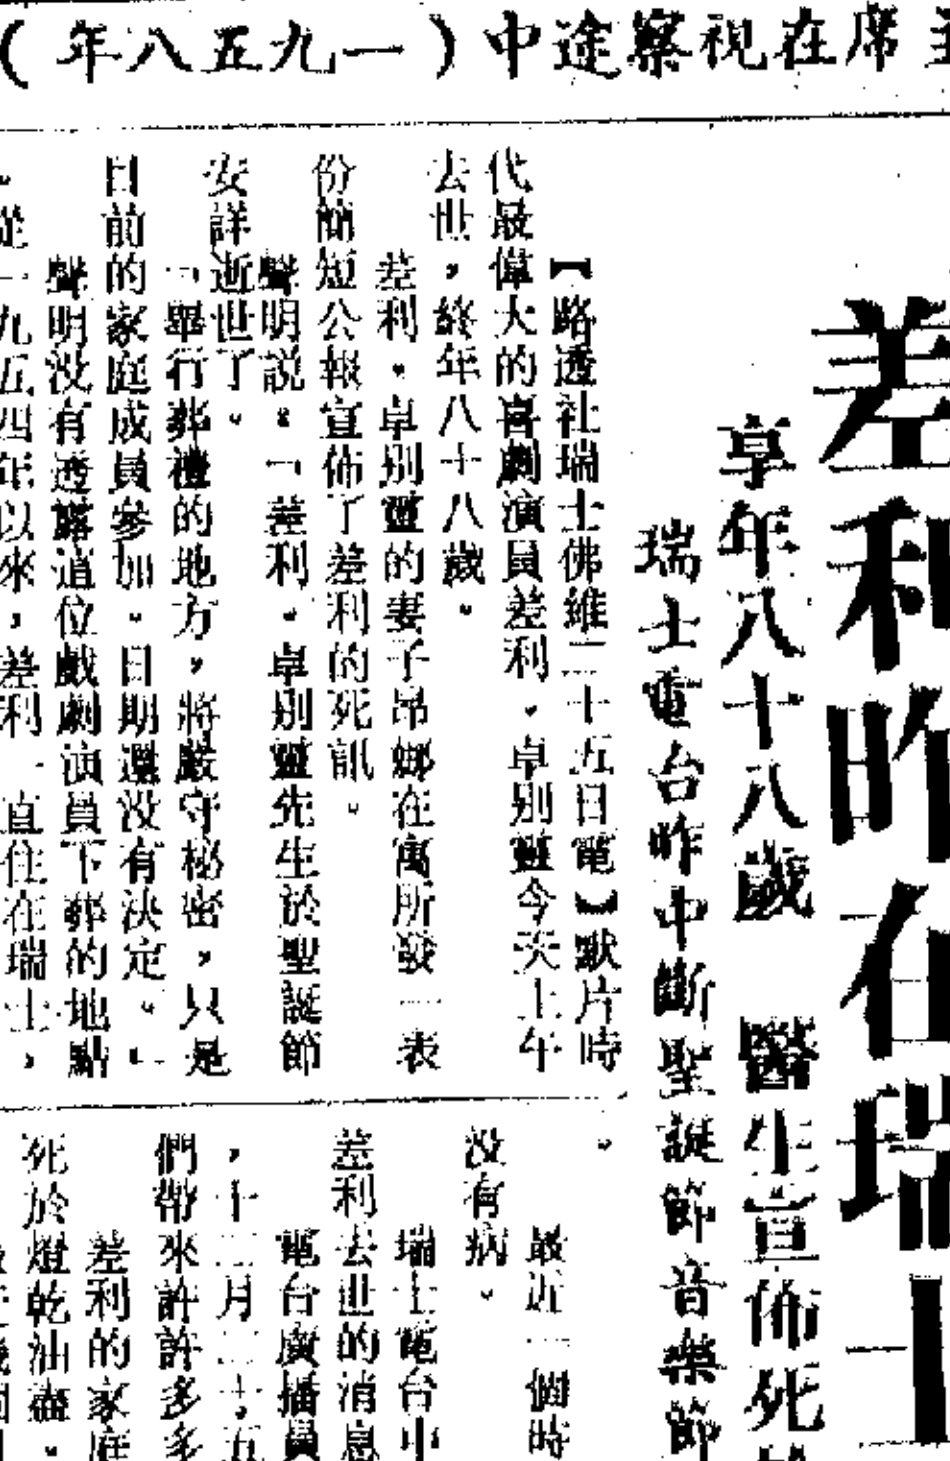 席在視察途中（一九五八年）
差利昨在瑞士
享年八十八歲　醫生宣佈死
瑞士電台昨中斷聖誕節音樂節
【路透社瑞士佛維二十五日電】默片時
代最偉大的喜劇演員差利・卓別靈今天上午
去世，終年八十八歲。
差利・卓別靈的妻子昂娜在寓所發一表
份簡短公報宣佈了差利的死訊。
聲明說：「差利・卓別靈先生於聖誕節
安詳逝世了。
「舉行葬禮的地方，將嚴守秘密，只是
目前的家庭成員參加。日期還没有決定。」
聲明没有透露這位戲劇演員下葬的地點
。從一九五四年以來，差利一直住在瑞士，
。
最近一個時
没有病。
瑞士電台中
差利去世的消息
電台廣播員
，十二月二十五
們帶來許許多多
差利的家庭
死於燈乾油盡。